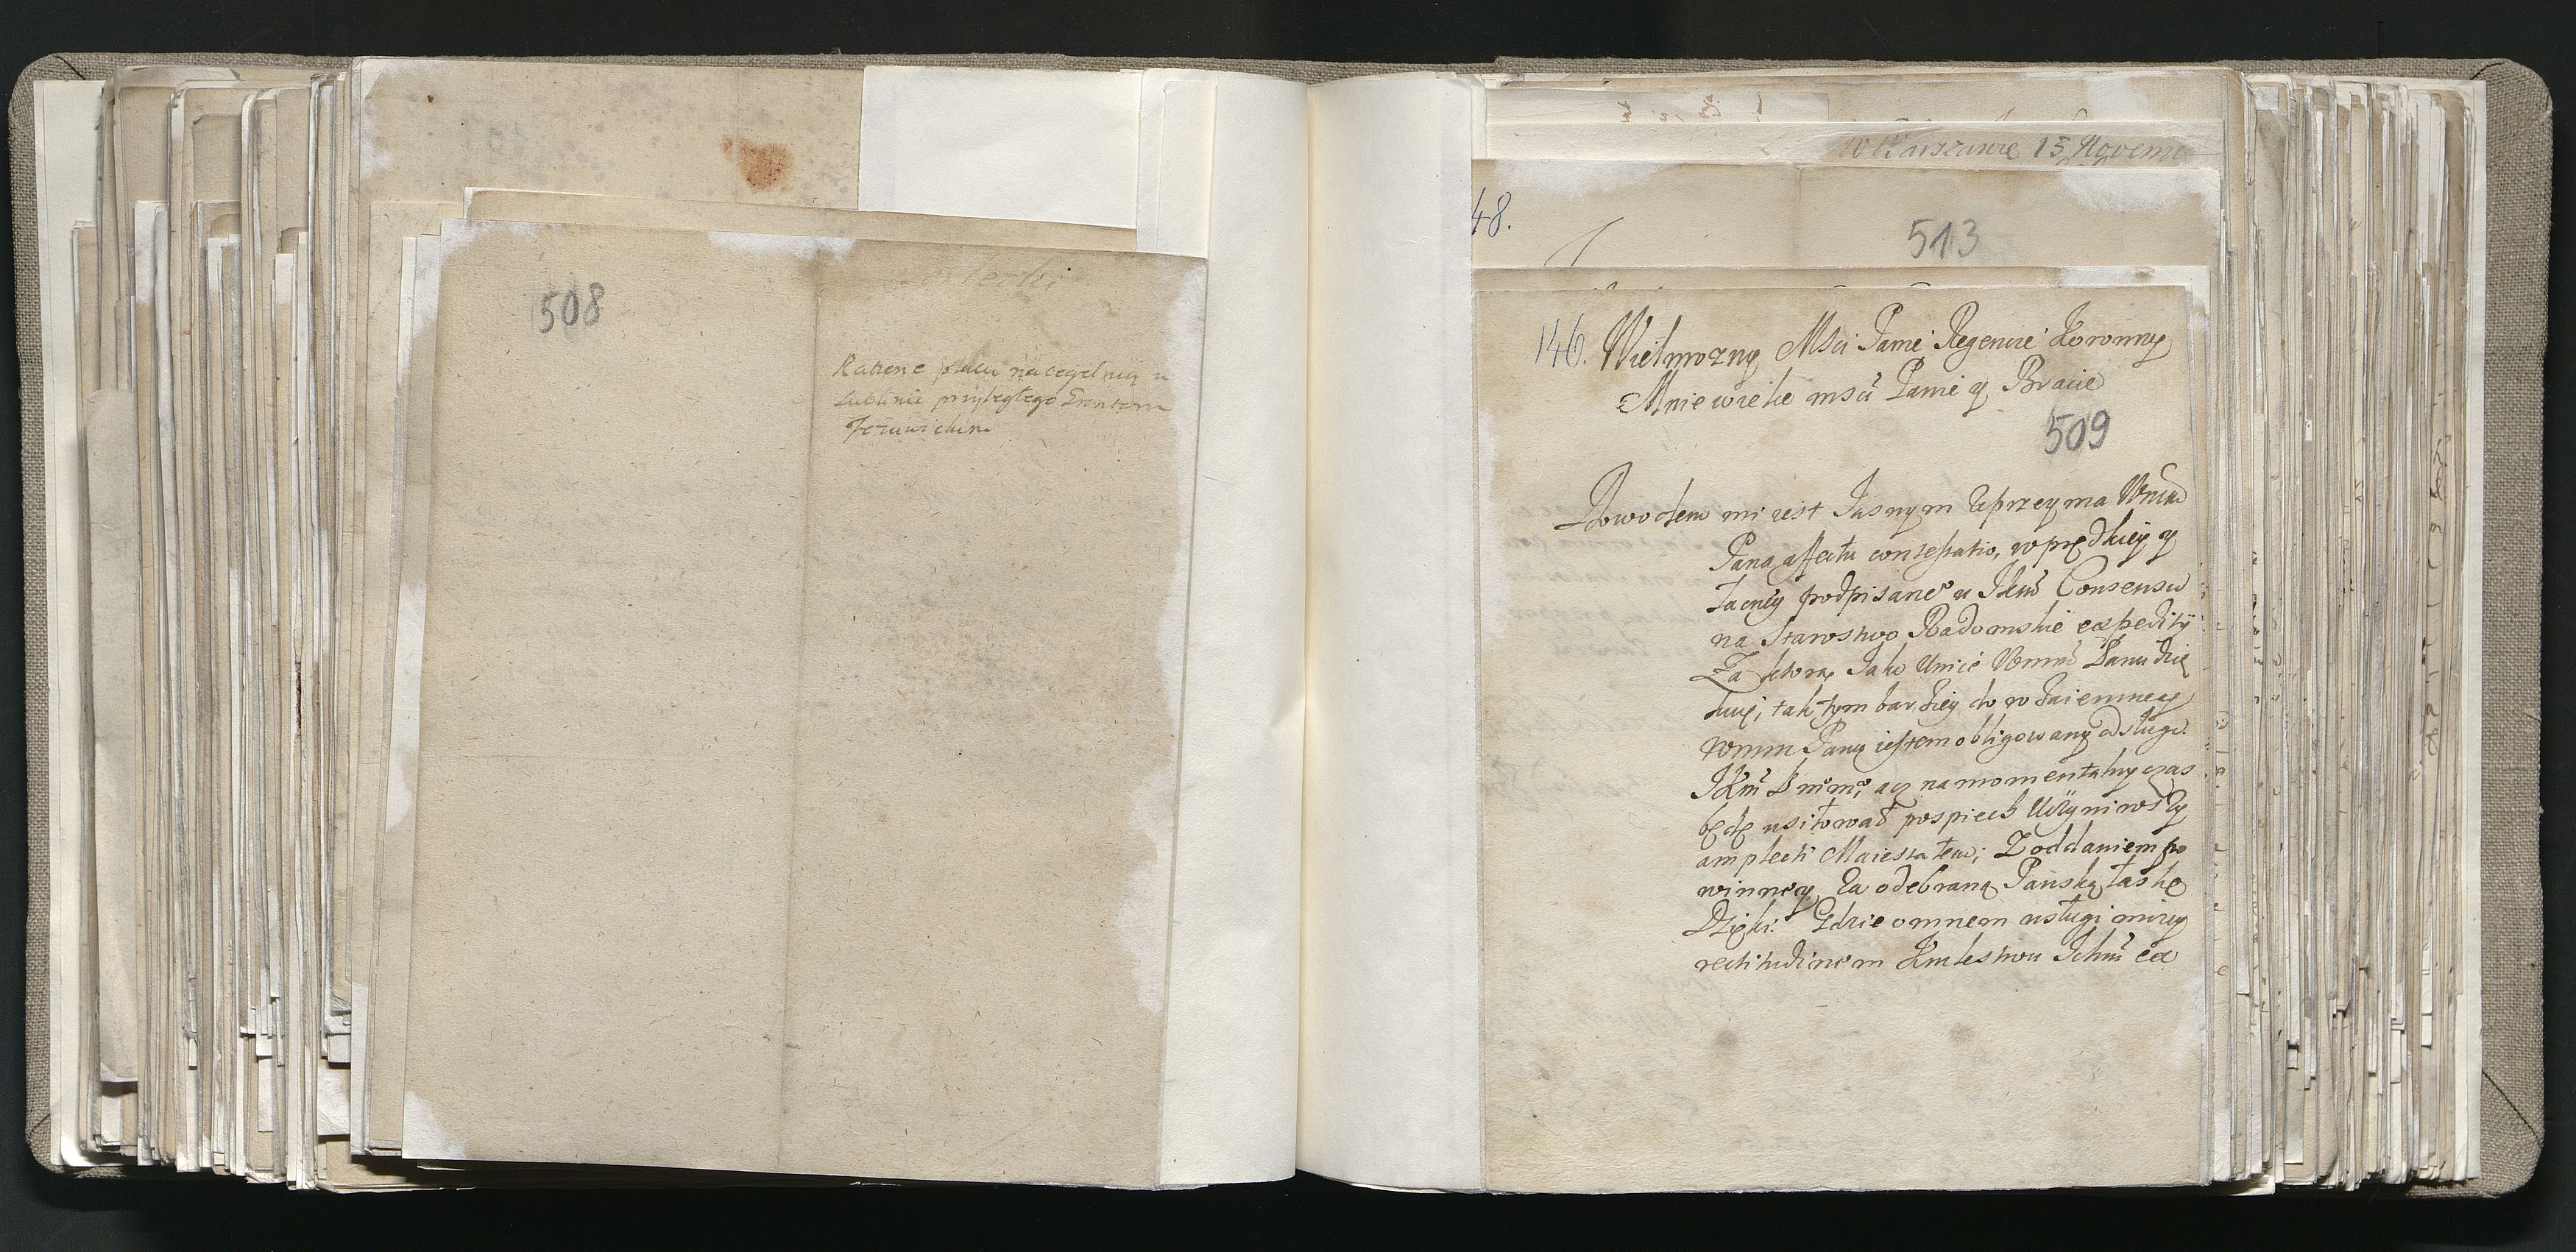 508
Ratione placu na cegelnią w
Lublinie przyległego Gruntom
Jezuickim
W Warszawie 13 Novemb
48.
513
146. Wielmozny Msci Panie Regencie Koronny
Mnie wielce mści Panie y Bracie
509
Dowodem mi iest Jasnym Uprzeyma Wmm
Pana affectu contestatio, w prędkiey y
łacney podpisane° u JKm Consensu
na Starostwo Radomskie expedityi
Za ktorą Jako Unice Wmm Panu dzię
kuię, tak tym bardziey do wzaiemney
Wmm Panu iestem obligowany odsługi.
JKm P mmo, acz na momentalny czas
będę usiłował pospiech Uczyniwszy
amplecti Maiestatem; Z oddaniem po
winney Za odebraną Pańską łaskę
Dzięki. Gdzie omnem usługi moiey
rectitudinem Królestwu Ichm ex